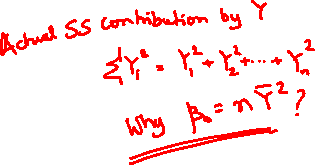 Actual SS contribution by Y
ΣYᵢ² = Y₁² + Y₂² + ... + Yₙ²
Why β₀ = nȲ² ?